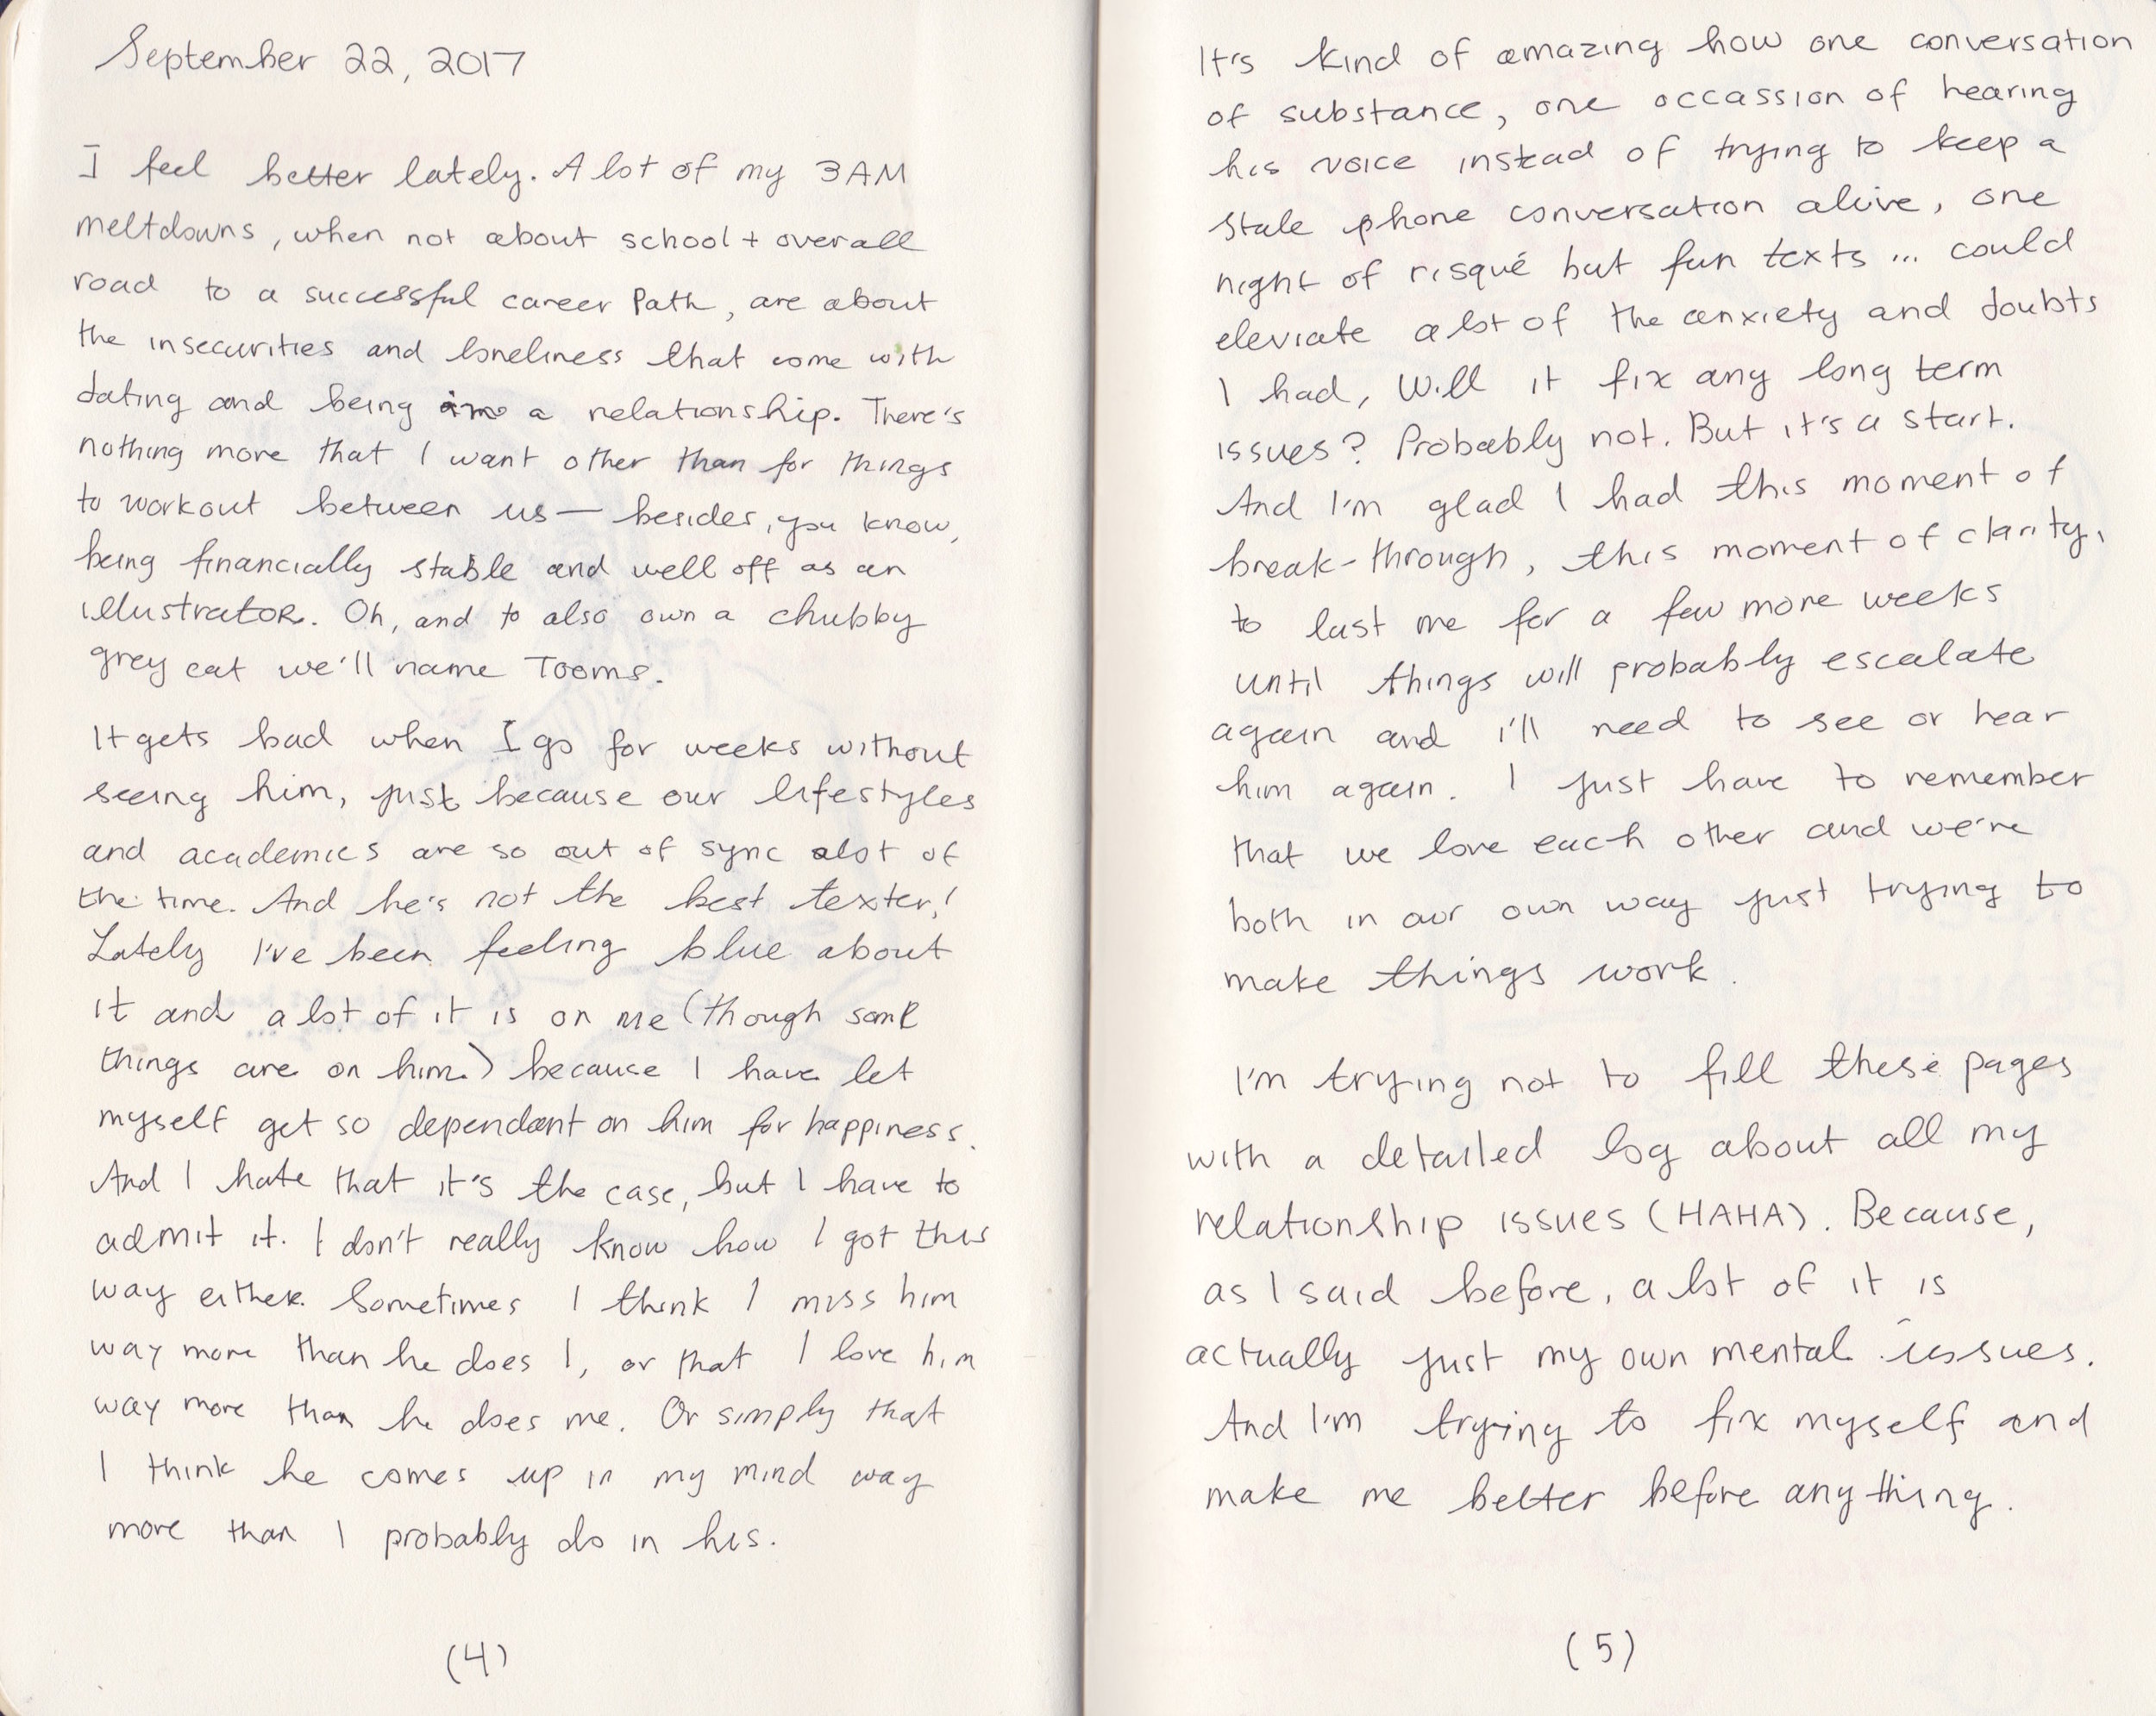 September 22, 2017
I feel better lately. A lot of my 3AM
meltdowns, when not about school + overall
road to a successful career path, are about
the insecurities and loneliness that come with
dating and being in a relationship. There's
nothing more that I want other than for things
to workout between us — besides, you know,
being financially stable and well off as an
illustrator. Oh, and to also own a chubby
grey cat we'll name Tooms.
It gets bad when I go for weeks without
seeing him, just because our lifestyles
and academics are so out of sync alot of
the time. And he's not the best texter!
Lately I've been feeling blue about
it and a lot of it is on me (though some
things are on him) because I have let
myself get so dependant on him for happiness.
And I hate that it's the case, but I have to
admit it. I don't really know how I got this
way either. Sometimes I think I miss him
way more than he does I, or that I love him
way more than he does me. Or simply that
I think he comes up in my mind way
more than I probably do in his.
(4)
It's kind of amazing how one conversation
of substance, one occassion of hearing
his voice instead of trying to keep a
stale phone conversation alive, one
night of risqué but fun texts ... could
eleviate a lot of the anxiety and doubts
I had, Will it fix any long term
issues? Probably not. But it's a start.
And I'm glad I had this moment of
break-through, this moment of clarity,
to last me for a few more weeks
until things will probably escalate
again and i'll need to see or hear
him again. I just have to remember
that we love each other and we're
both in our own way just trying to
make things work.
I'm trying not to fill these pages
with a detailed log about all my
relationship issues (HAHA). Because,
as I said before, a lot of it is
actually just my own mental issues.
And I'm trying to fix myself and
make me better before anything.
(5)